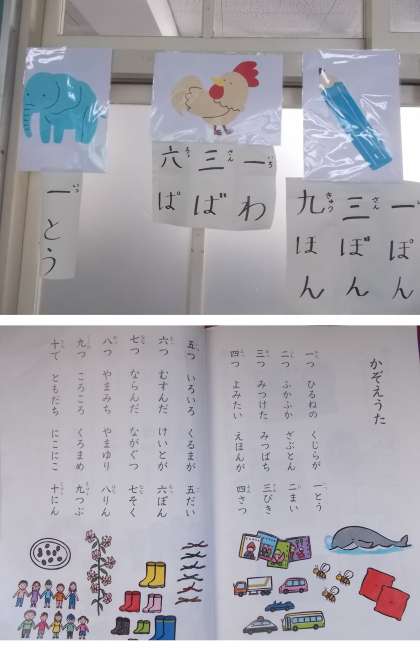 一とう
一わ
三ば
六ぱ
一ぽん
三ぼん
九ほん
かぞえうた
一つ ひるねの くじらが 一とう
二つ ふかふか ざぶとん 二まい
三つ みつけた みつばち 三びき
四つ よみたい えほんが 四さつ
五つ いろいろ くるまが 五だい
六つ むすんだ けいとが 六ぽん
七つ ならんだ ながぐつ 七そく
八つ やまみち やまゆり 八りん
九つ ころころ くろまめ 九つぶ
十で ともだち にこにこ 十にん